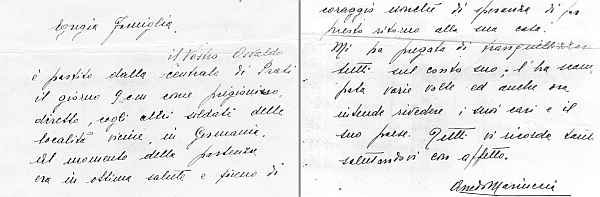 Egregia Famiglia,
il Vostro Osvaldo
è partito dalla centrale di Prati
il giorno 9 c.m. come prigioniero,
diretto, cogli altri soldati delle
località vicine, in Germania.
Al momento della partenza
era in ottima salute e pieno di
coraggio nonchè di speranza di far
presto ritorno alla sua casa.
Mi ha pregata di tranquillizzare
tutti sul conto suo, l'ha scam-
pata varie volte ed anche ora
intende rivedere i suoi cari e il
suo paese. Tutti vi ricorda
salutandovi con affetto.